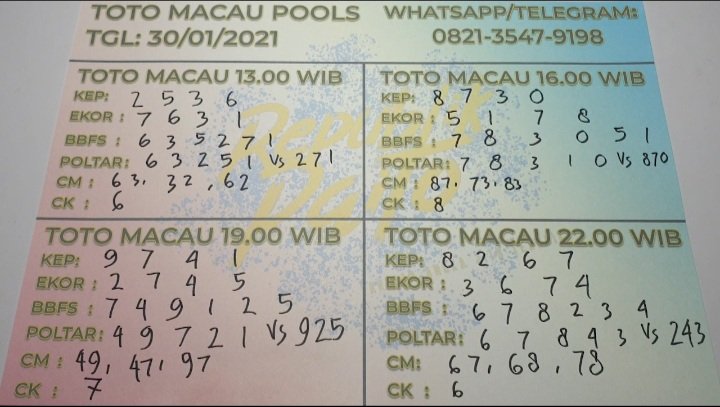 TOTO MACAU POOLS
TGL: 30/01/2021
WHATSAPP/TELEGRAM:
0821-3547-9198
TOTO MACAU 13.00 WIB
KEP: 2 5 3 6
EKOR : 7 6 3 1
BBFS : 6 3 5 2 7 1
POLTAR: 6 3 2 5 1 Vs 271
CM : 63, 32, 62
CK : 6
TOTO MACAU 16.00 WIB
KEP: 8 7 3 0
EKOR : 5 1 7 8
BBFS : 7 8 3 0 5 1
POLTAR: 7 8 3 1 0 Vs 870
CM : 87. 73. 83
CK : 8
TOTO MACAU 19.00 WIB
KEP: 9 7 4 1
EKOR : 2 7 4 5
BBFS : 7 4 9 1 2 5
POLTAR: 4 9 7 2 1 Vs 925
CM : 49, 47, 97
CK : 7
TOTO MACAU 22.00 WIB
KEP: 8 2 6 7
EKOR : 3 6 7 4
BBFS : 6 7 8 2 3 4
POLTAR: 6 7 8 4 3 Vs 243
CM: 67, 68, 78
CK : 6